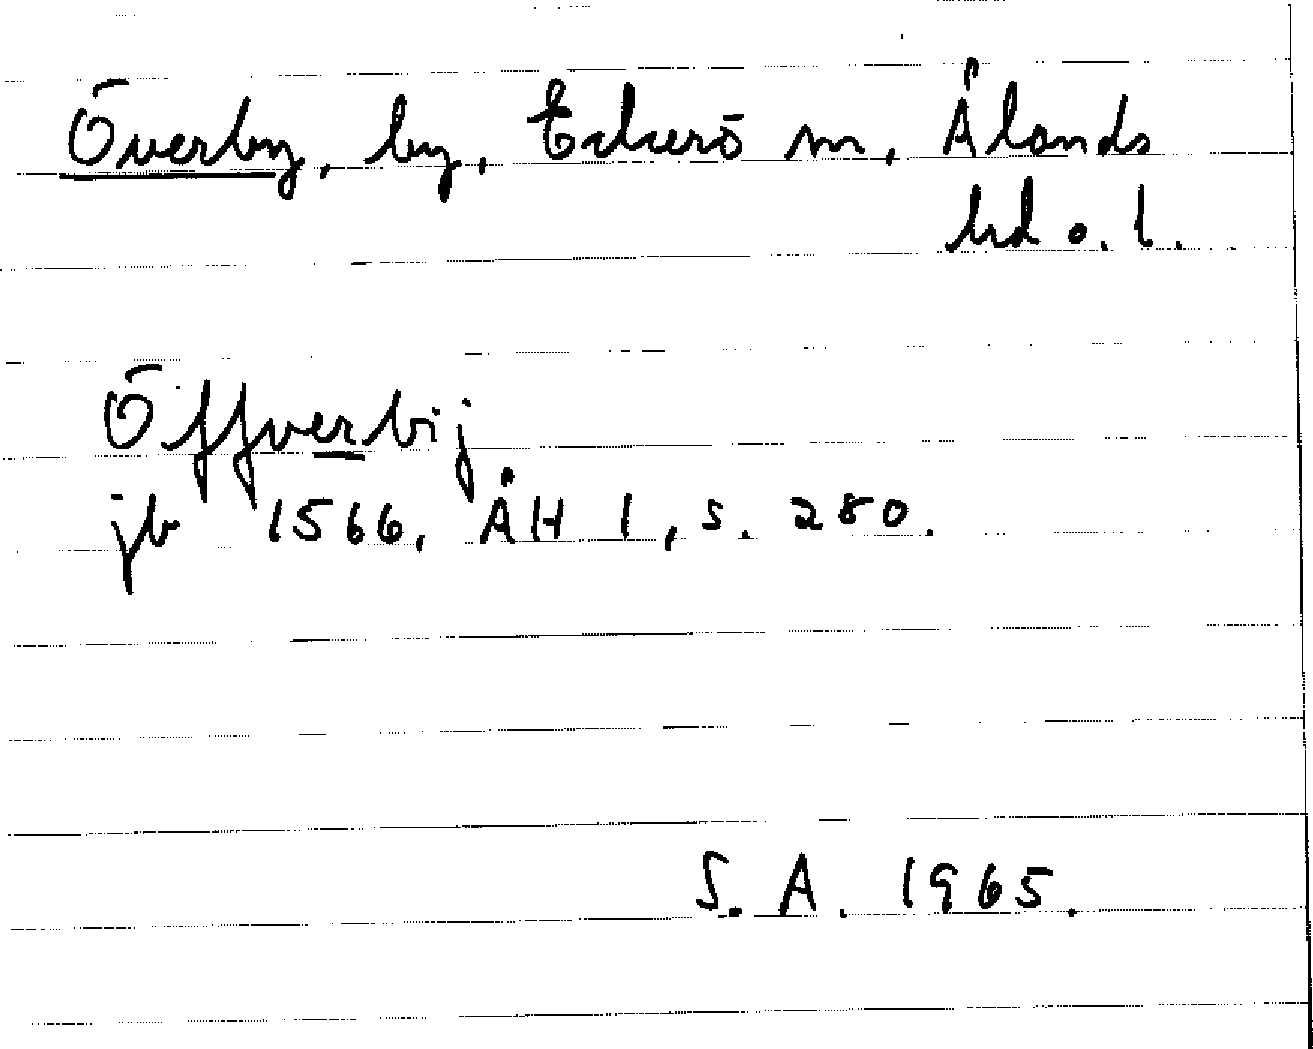 Överby, by, Eckerö sn, Ålands
hd o. l.
Öffverbij
jb 1566, ÅH 1, s. 280.
S. A. 1965.